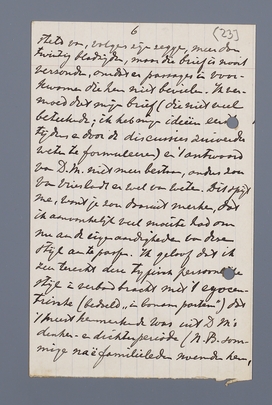 6
(23)
steeds van, volgens zijn zeggen, meer dan
twintig bladzijden, maar die brief is nooit
verzonden, omdat er passages in voor-
kwamen die hem niet bevielen. Ik ver-
moed dat mijn brief (die niet veel
beteekende; ik heb mijn ideeën
tijdens en door de discussies zuiverder
weten te formuleeren) en 't antwoord
van D.M. niet meer bestaan, anders zou
van Vriesland er wel van weten. Dit spijt
me, want je zou daaruit merken, dat
ik aanvankelijk veel moeite had om
me aan de eigenaardigheden van dezen
stijl aan te passen. Ik geloof dat ik
zeer terecht deze typisch persoonlijke
stijl in verband bracht met 't egocen-
trische (bedoeld "in bonam partem") dat
't meest kenmerkende was uit D.M.'s
denken- en dichtenperiode (N.B. som-
mige naëe familieleden noemden hem,